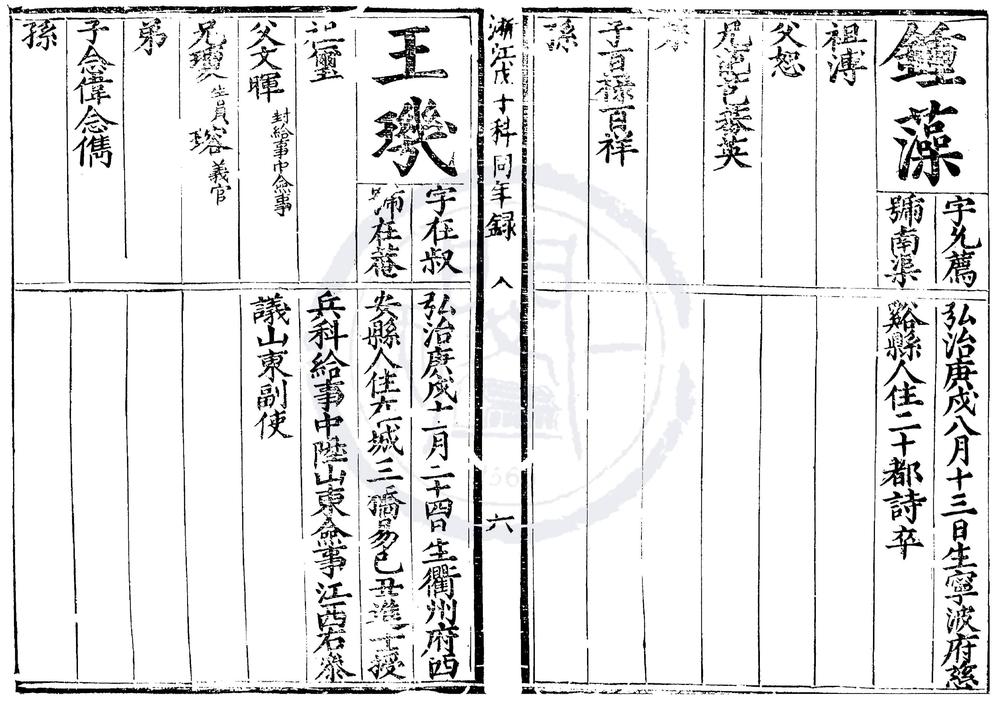 鍾藻
字允薦
號南渠
弘治庚戌八月十三日生寧波府慈
谿縣人住二十都詩卒
祖溥
父恕
兄范芑蕃英
弟
子百祿百祥
孫
浙江戊午科同年録
八
六
王璣
字在叔
號在菴
弘治庚戌十一月二十四日生衢州府西
安縣人住在城三橋易己丑進士授
兵科給事中陞山東僉事江西右叅
議山東副使
祖璽
父文暉 封給事中僉事
兄 生員 瑢 義官
弟
子念偉念儁
孫